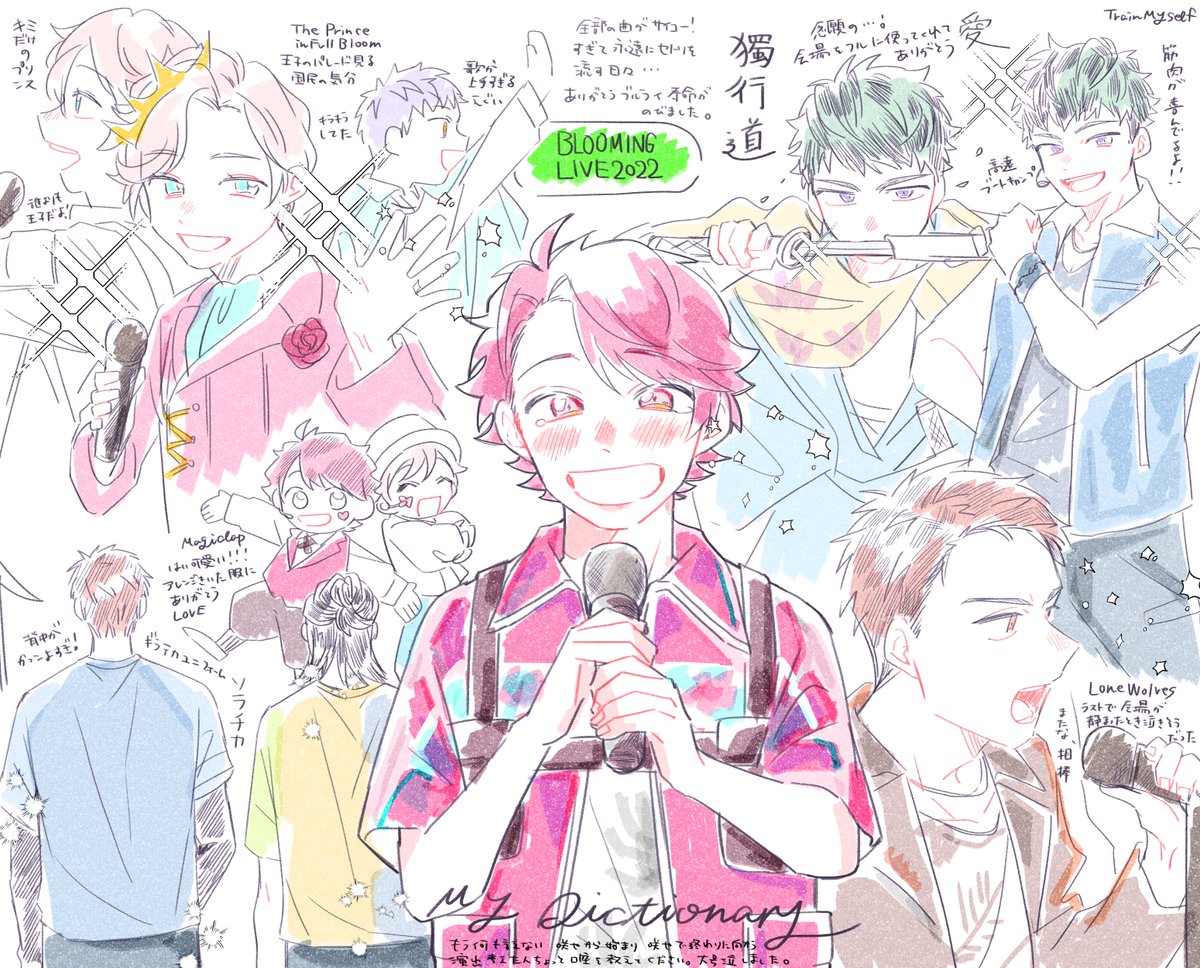 キミ
だけの
プリンス
The Prince
in Full Bloom
王子のパレード見る
国民の気分
キラキラ
してた
歌が
上手すぎる
誰よりも
王子だよ!
全部の曲がサイコー!
すぎて永遠にセトリを
流す日々…
ありがとうブルライ 寿命が
のびました。
BLOOMING
LIVE2022
獨行道
念願の…!
会場をフルに使ってくれて
ありがとう
愛
Train Myself
筋肉が喜んでるよ!!
高速
ブートキャンプ
Magiclap
はい可愛い!!!
アレンジきいた服に
ありがとう
LOVE
背中が
かっこよすぎ!
ギラテカユニフォーム
ソラチカ
Lone Wolves
ラストで会場が
静まったとき泣きそう
だった
またな、相棒
My Dictionary
もう何も言えない 咲也から始まり 咲也で終わりに向かう
演出考えたんちょっと口座を教えてください。大号泣しました。